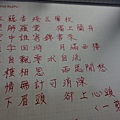 紅藕香殘玉簟秋
輕解羅裳 獨上蘭舟
雲中誰寄錦書來
雁字回時 月滿西樓
花自飄零水自流
一種相思 兩處閒愁
此情無計可消除
才下眉頭 卻上心頭